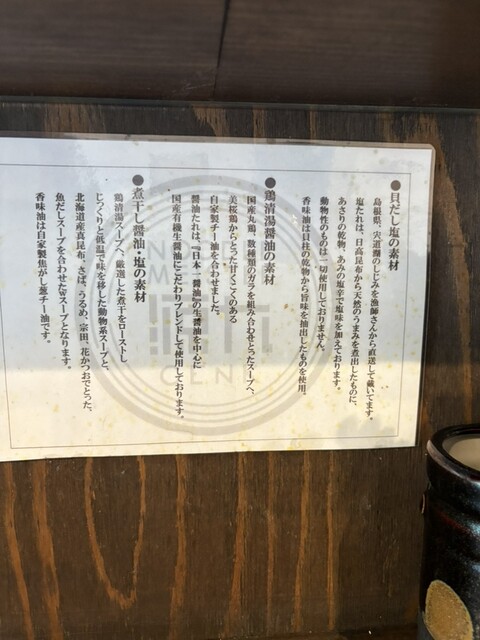 ●貝だし塩の素材
島根県、宍道湖のしじみを漁師さんから直送して戴いてます。
塩たれは、日高昆布から天然のうまみを煮出したものに、
あさりの乾物、あみの塩辛で塩味を加えております。
動物性のものは一切使用しておりません。
香味油は貝柱の乾物から旨味を抽出したものを使用。
●鶏清湯醤油の素材
国産丸鶏、数種類のガラを組み合わせとったスープへ、
美桜鶏からとった甘くこくのある
自家製チー油を合わせました。
醤油たれは、『日本一醤油』の生醤油を中心に
国産有機生醤油にこだわりブレンドして使用しております。
●煮干し醤油・塩の素材
鶏清湯スープへ、厳選した煮干をローストし、
じっくりと低温で味を移した動物系スープと、
北海道産真昆布、さば、うるめ、宗田、花かつおでとった、
魚だしスープを合わせたWスープとなります。
香味油は自家製焦がし葱チー油です。